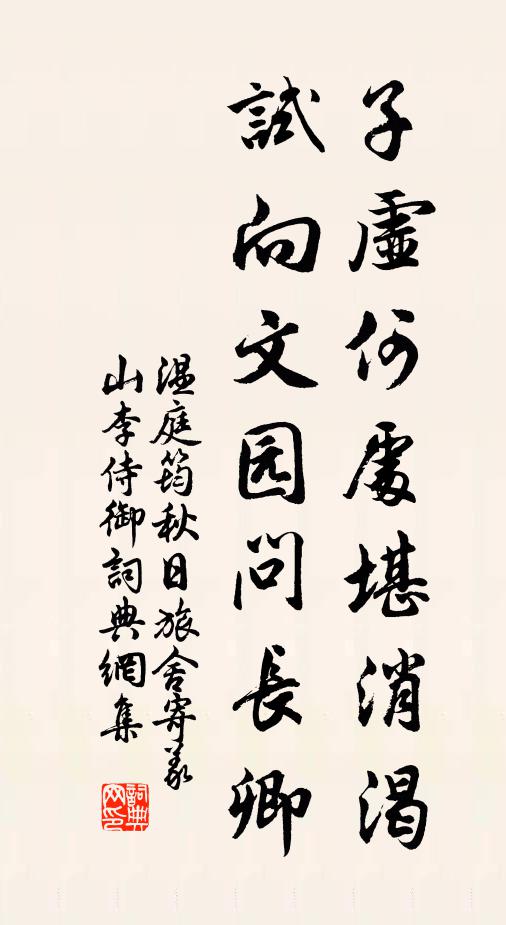 子虛何處堪消渴
試向文园問長卿
温庭筠秋日旅舍寄義
山李侍御詞典網集
詞典网印